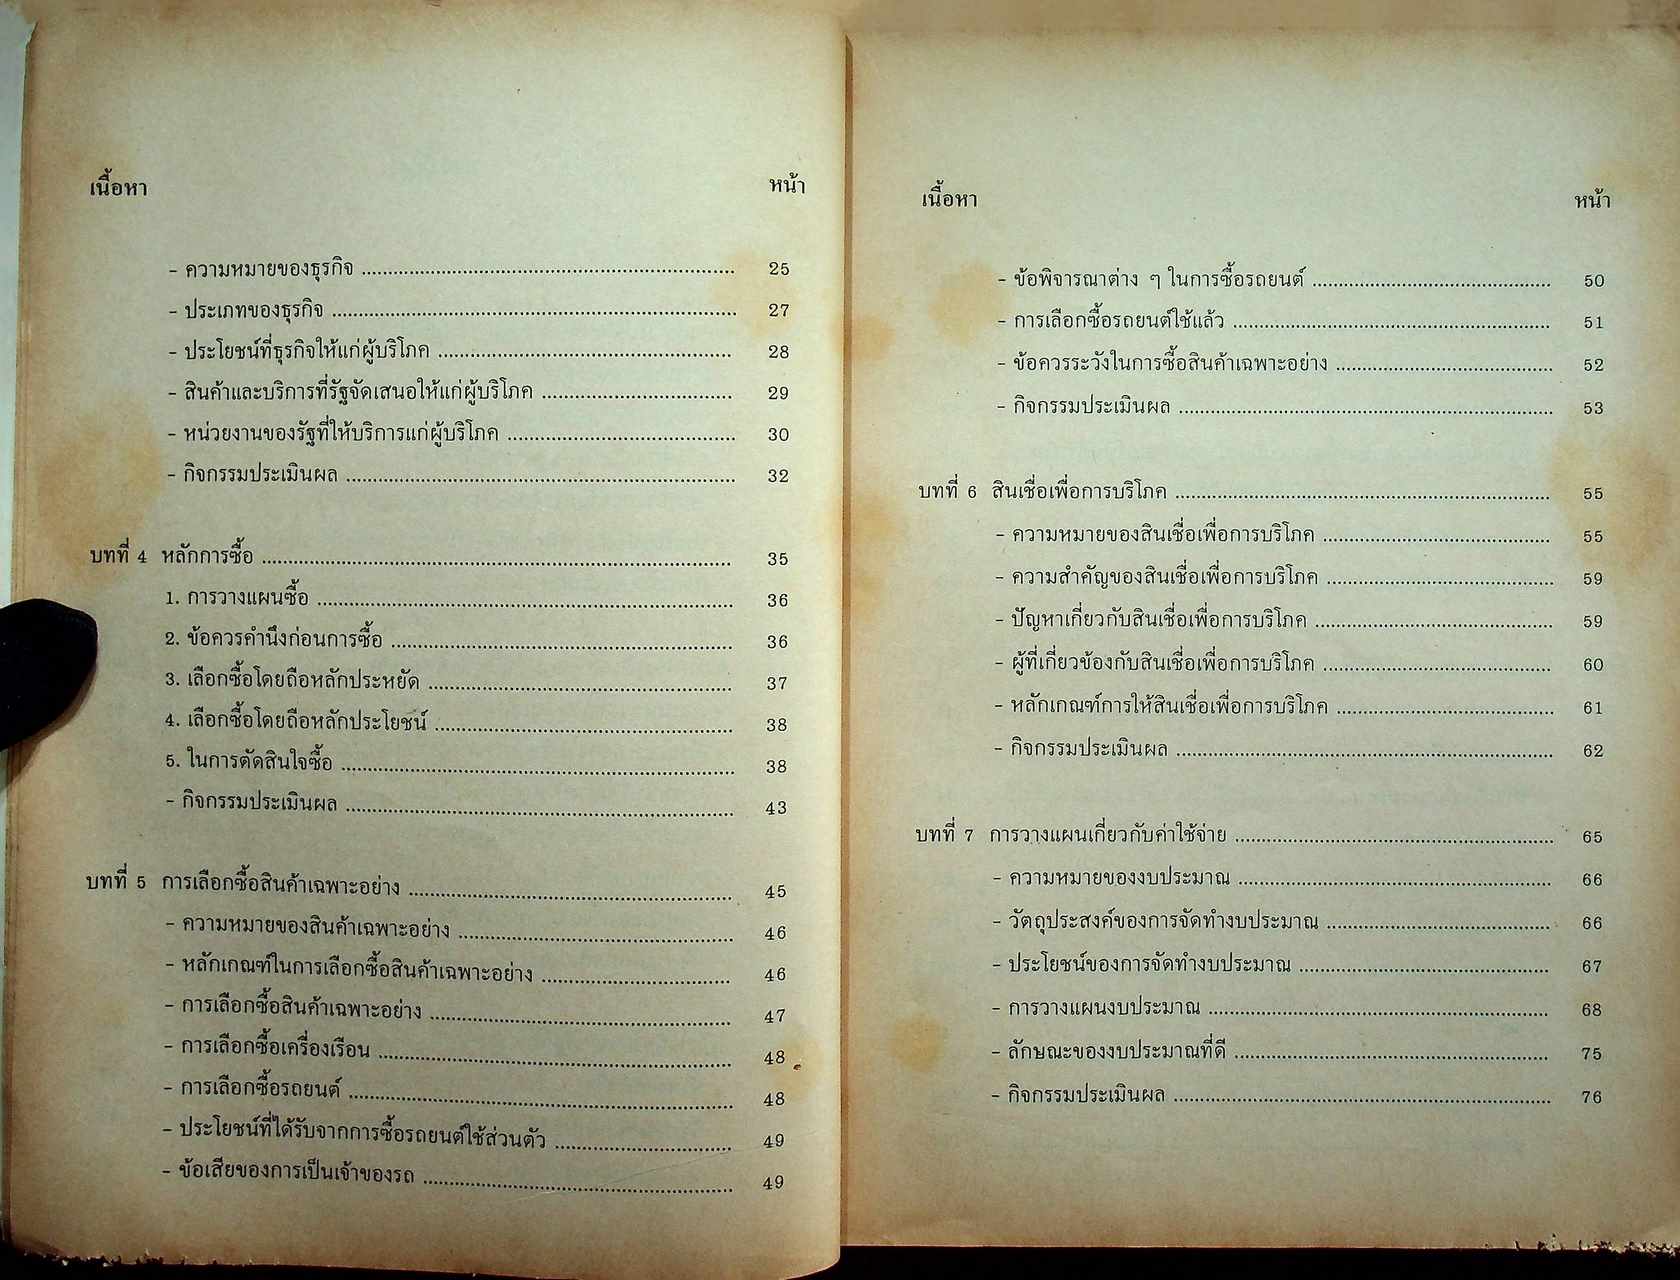 เนื้อหา หน้า
- ความหมายของธุรกิจ ........ 25
- ประเภทของธุรกิจ ........ 27
- ประโยชน์ที่ธุรกิจให้แก่ผู้บริโภค ........ 28
- สินค้าและบริการที่รัฐจัดเสนอให้แก่ผู้บริโภค ........ 29
- หน่วยงานของรัฐที่ให้บริการแก่ผู้บริโภค ........ 30
- กิจกรรมประเมินผล ........ 32
บทที่ 4 หลักการซื้อ ........ 35
1. การวางแผนซื้อ ........ 36
2. ข้อควรคำนึงก่อนการซื้อ ........ 36
3. เลือกซื้อโดยถือหลักประหยัด ........ 37
4. เลือกซื้อโดยถือหลักประโยชน์ ........ 38
5. ในการตัดสินใจซื้อ ........ 38
- กิจกรรมประเมินผล ........ 43
บทที่ 5 การเลือกซื้อสินค้าเฉพาะอย่าง ........ 45
- ความหมายของสินค้าเฉพาะอย่าง ........ 46
- หลักเกณฑ์ในการเลือกซื้อสินค้าเฉพาะอย่าง ........ 46
- การเลือกซื้อสินค้าเฉพาะอย่าง ........ 47
- การเลือกซื้อเครื่องเรือน ........ 48
- การเลือกซื้อรถยนต์ ........ 48
- ประโยชน์ที่ได้รับจากการซื้อรถยนต์ใช้ส่วนตัว ........ 49
- ข้อเสียของการเป็นเจ้าของรถ ........ 49
เนื้อหา หน้า
- ข้อพิจารณาต่าง ๆ ในการซื้อรถยนต์ ........ 50
- การเลือกซื้อรถยนต์ใช้แล้ว ........ 51
- ข้อควรระวังในการซื้อสินค้าเฉพาะอย่าง ........ 52
- กิจกรรมประเมินผล ........ 53
บทที่ 6 สินเชื่อเพื่อการบริโภค ........ 55
- ความหมายของสินเชื่อเพื่อการบริโภค ........ 55
- ความสำคัญของสินเชื่อเพื่อการบริโภค ........ 59
- ปัญหาเกี่ยวกับสินเชื่อเพื่อการบริโภค ........ 59
- ผู้ที่เกี่ยวข้องกับสินเชื่อเพื่อการบริโภค ........ 60
- หลักเกณฑ์การให้สินเชื่อเพื่อการบริโภค ........ 61
- กิจกรรมประเมินผล ........ 62
บทที่ 7 การวางแผนเกี่ยวกับค่าใช้จ่าย ........ 65
- ความหมายของงบประมาณ ........ 66
- วัตถุประสงค์ของการจัดทำงบประมาณ ........ 66
- ประโยชน์ของการจัดทำงบประมาณ ........ 67
- การวางแผนงบประมาณ ........ 68
- ลักษณะของงบประมาณที่ดี ........ 75
- กิจกรรมประเมินผล ........ 76